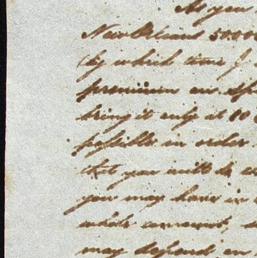 As you
New Orleans 50.000
(by which time I
premium
bring it only at 10
possible in order
that you will be
you may have in
whole amount,
may depend on